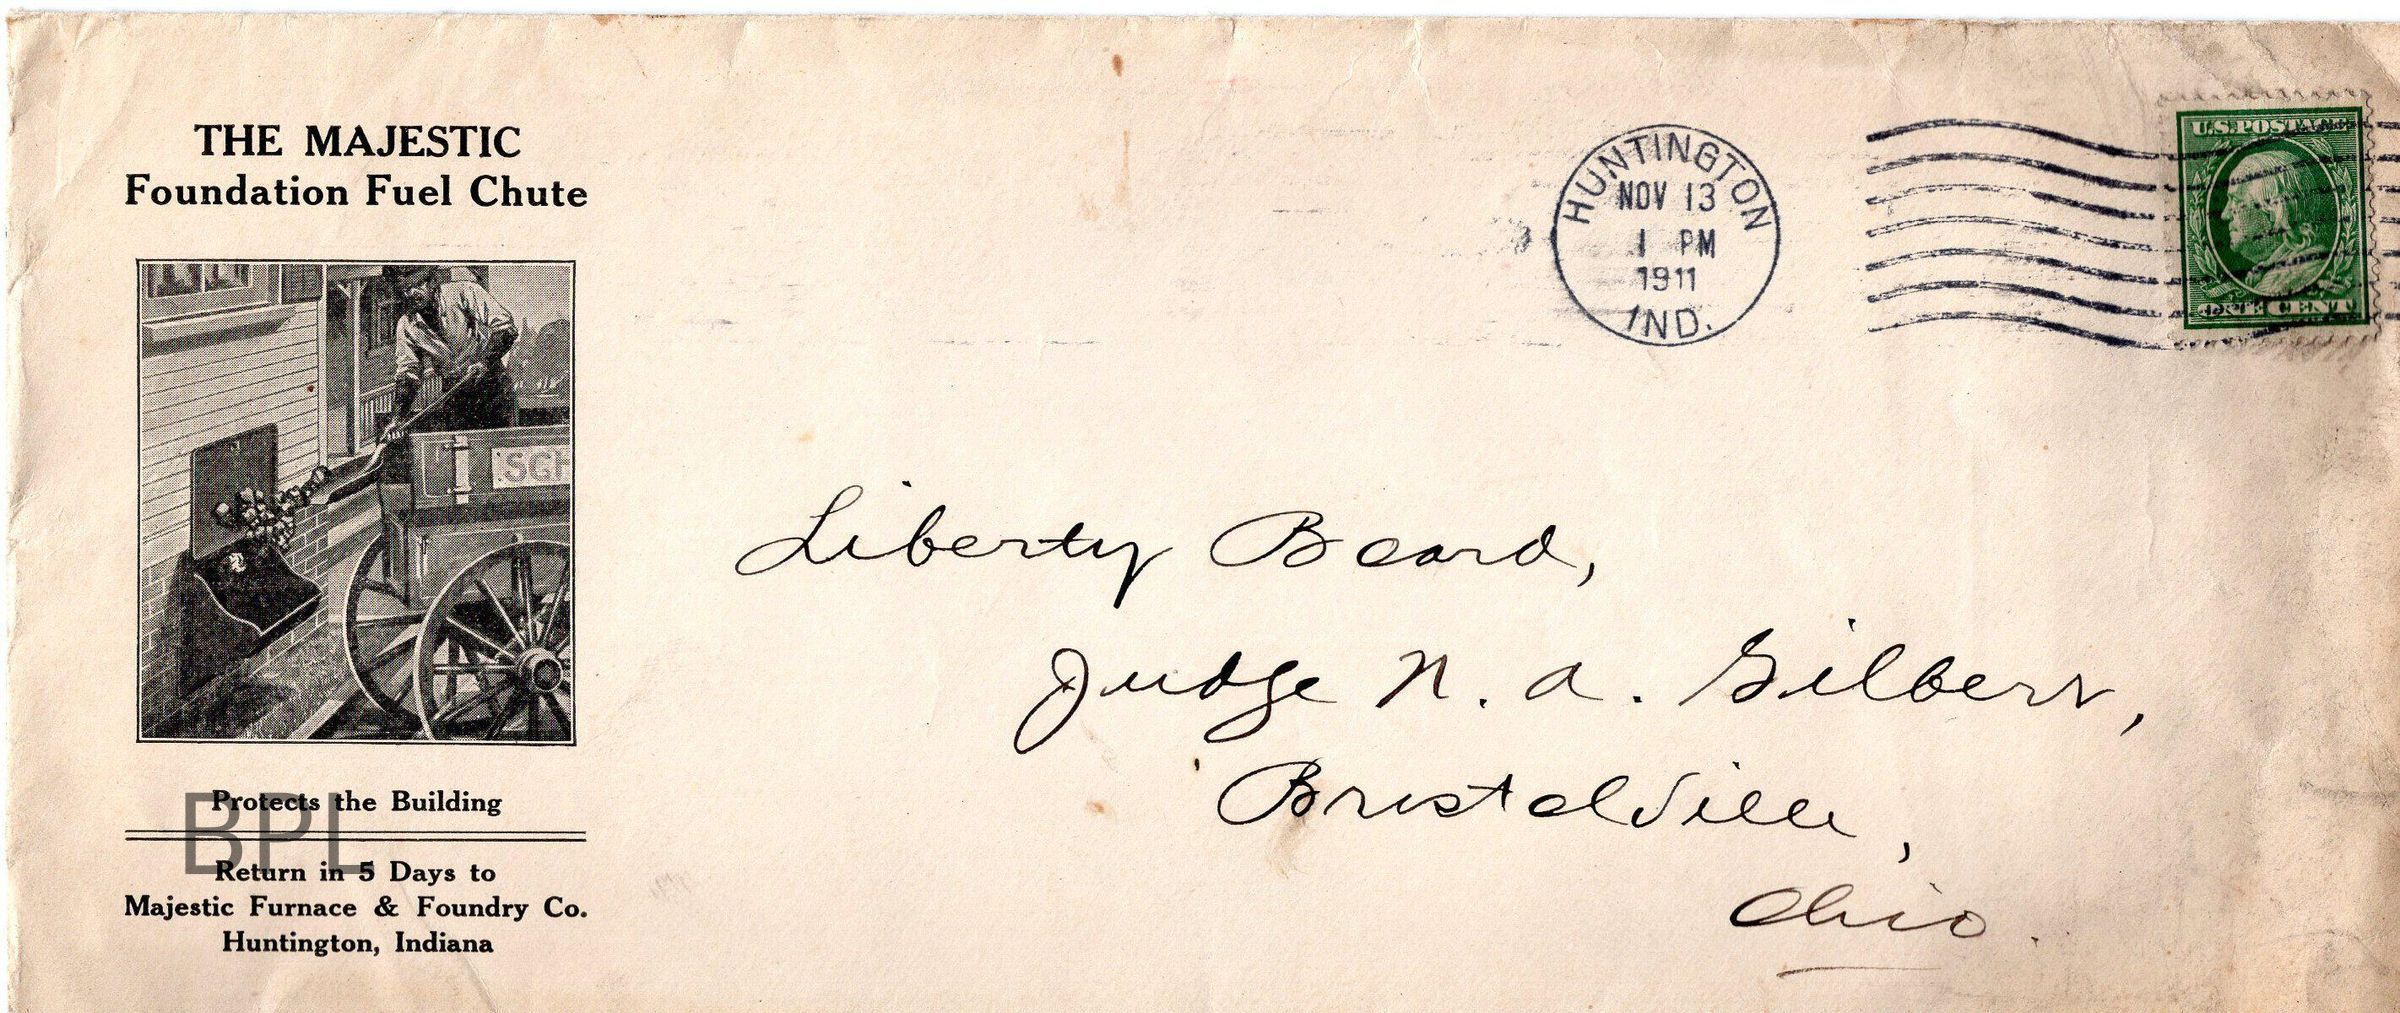 THE MAJESTIC
Foundation Fuel Chute
SCH
Protects the Building
BPL
Return in 5 Days to
Majestic Furnace & Foundry Co.
Huntington, Indiana
HUNTINGTON
NOV 13
1 PM
1911
IND.
U.S. POSTAGE
ONE CENT
Liberty Beard,
Judge N. A. Gilbert,
Bristolville,
Ohio.